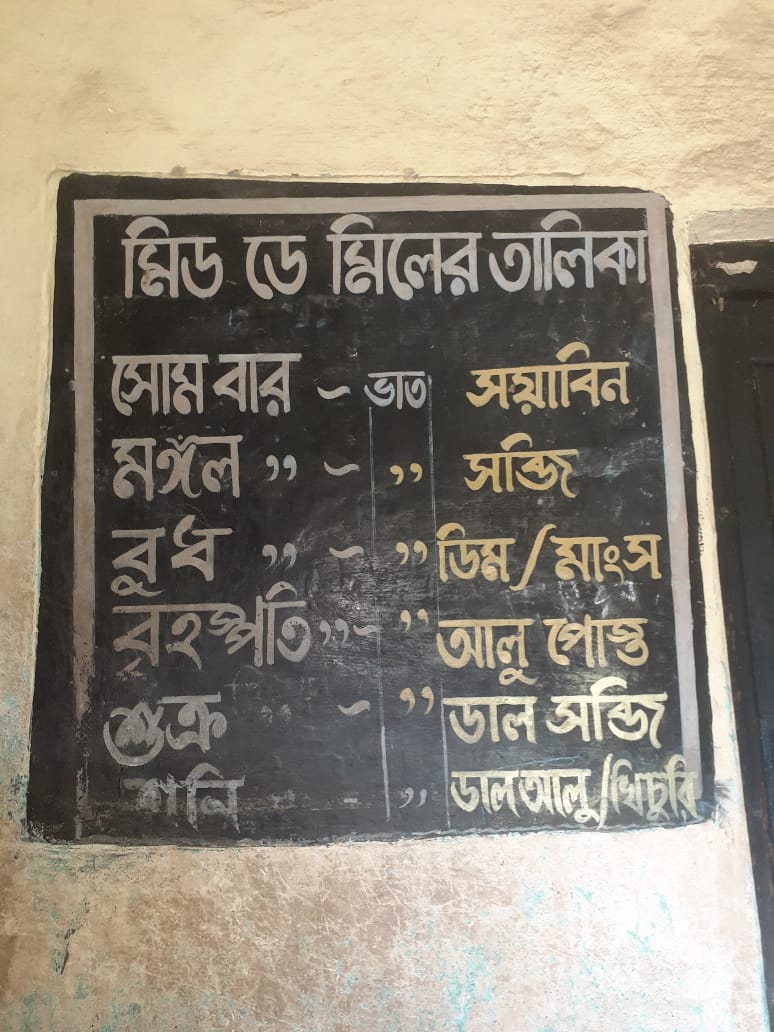 মিড ডে মিলের তালিকা
সোম বার - ভাত সয়াবিন
মঙ্গল ,, - ,, সব্জি
বুধ ,, - ,, ডিম / মাংস
বৃহস্পতি ,, - ,, আলু পোস্ত
শুক্র - ,, ডাল সব্জি
শনি - ,, ডাল আলু / খিচুরি